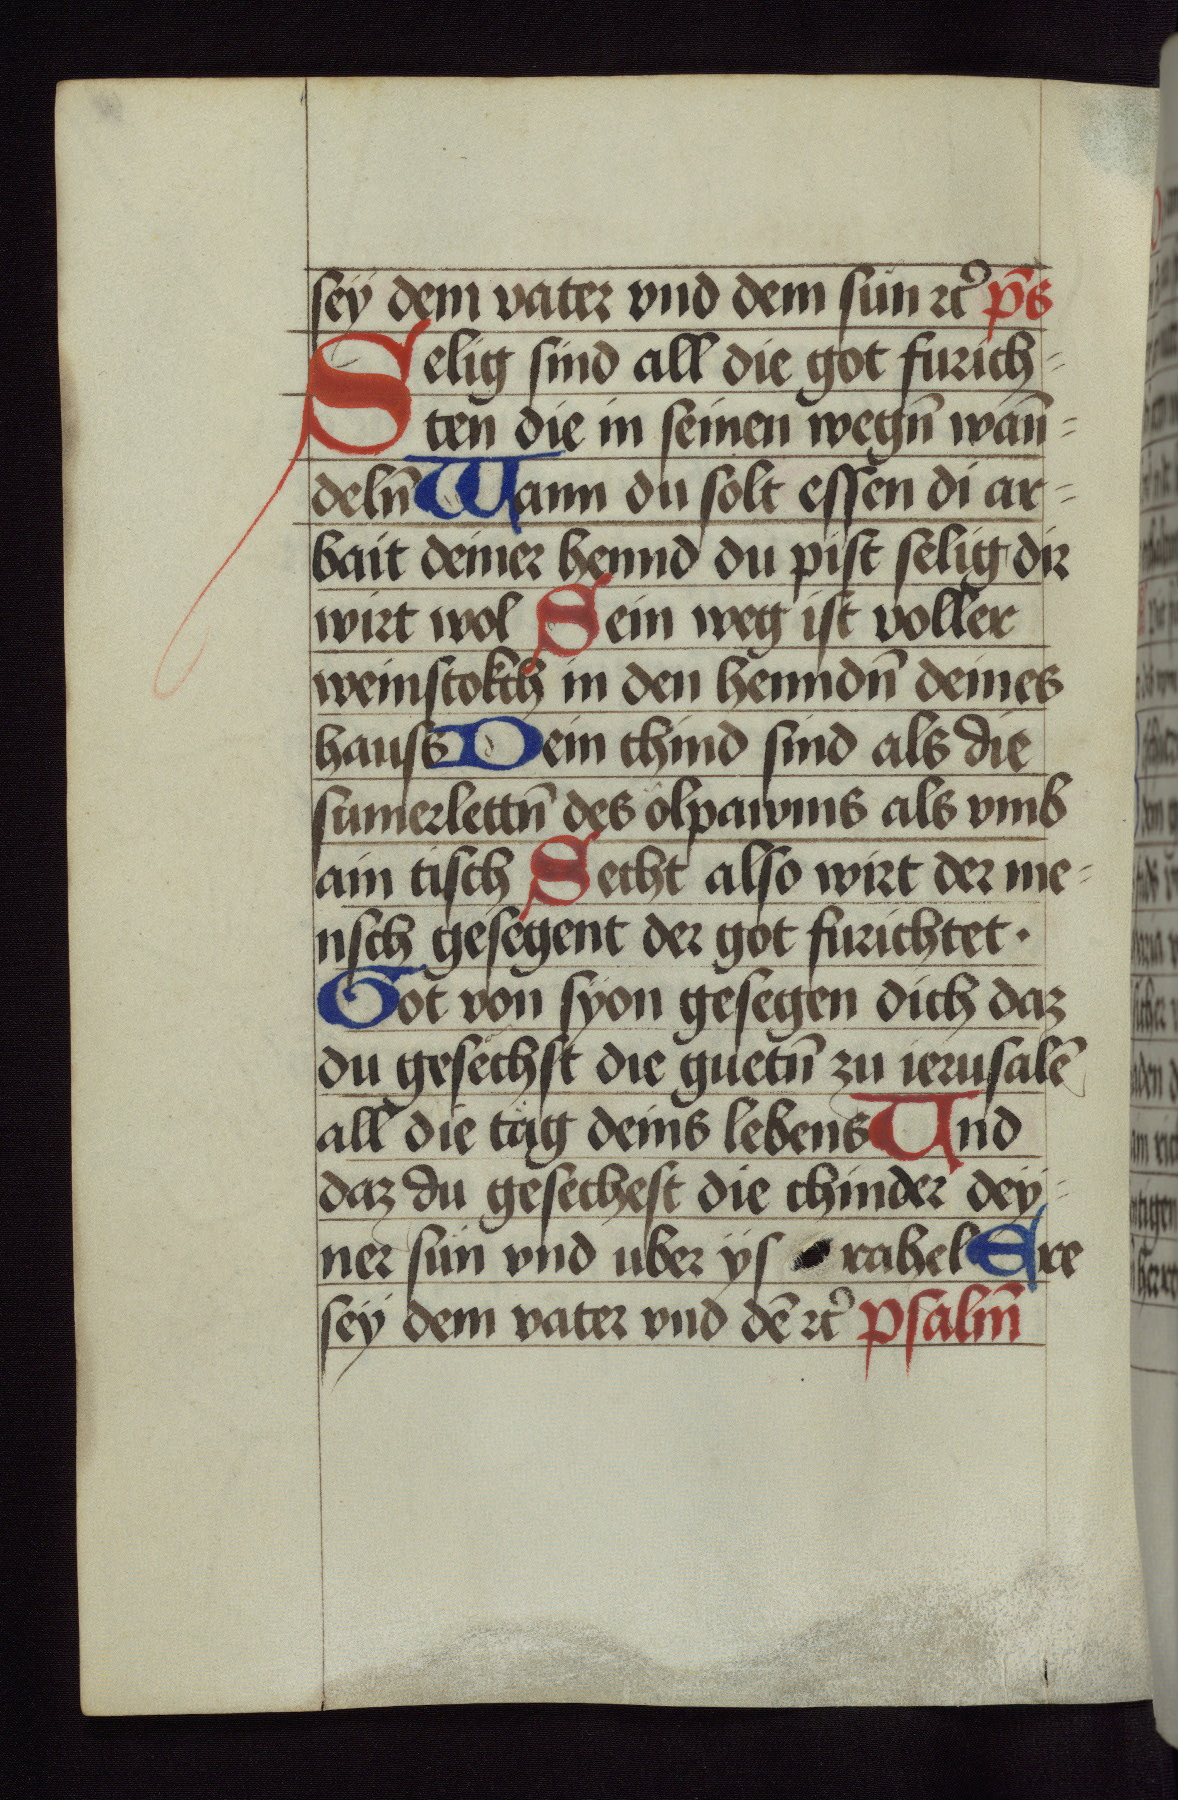 sey dem vater vnd dem sun ꝛc̉ p̄s
Selig sind all die got furich⸗
ten die in seinen wegn̄ wan̄⸗
deln̄ Wann du solt essen di ar⸗
bait deiner hennd du pist selig dir
wirt wol Sein weg ist voller
weinstokch in den henndn̄ deines
hauss Dein chind sind als die
sumerlettn̄ des ölpawms als vmb
ain tisch Secht also wirt der me⸗
nsch gesegent der got furichtet ·
Got von syon gesegen dich daz
du gesechst die guetn̄ zu ierusalē
all die täg deins lebens Und
daz du gesechest die chinder dey⸗
ner sün vnd uber ys rahel Ere
sey dem vater vnd dē ꝛc̉ psalm̄